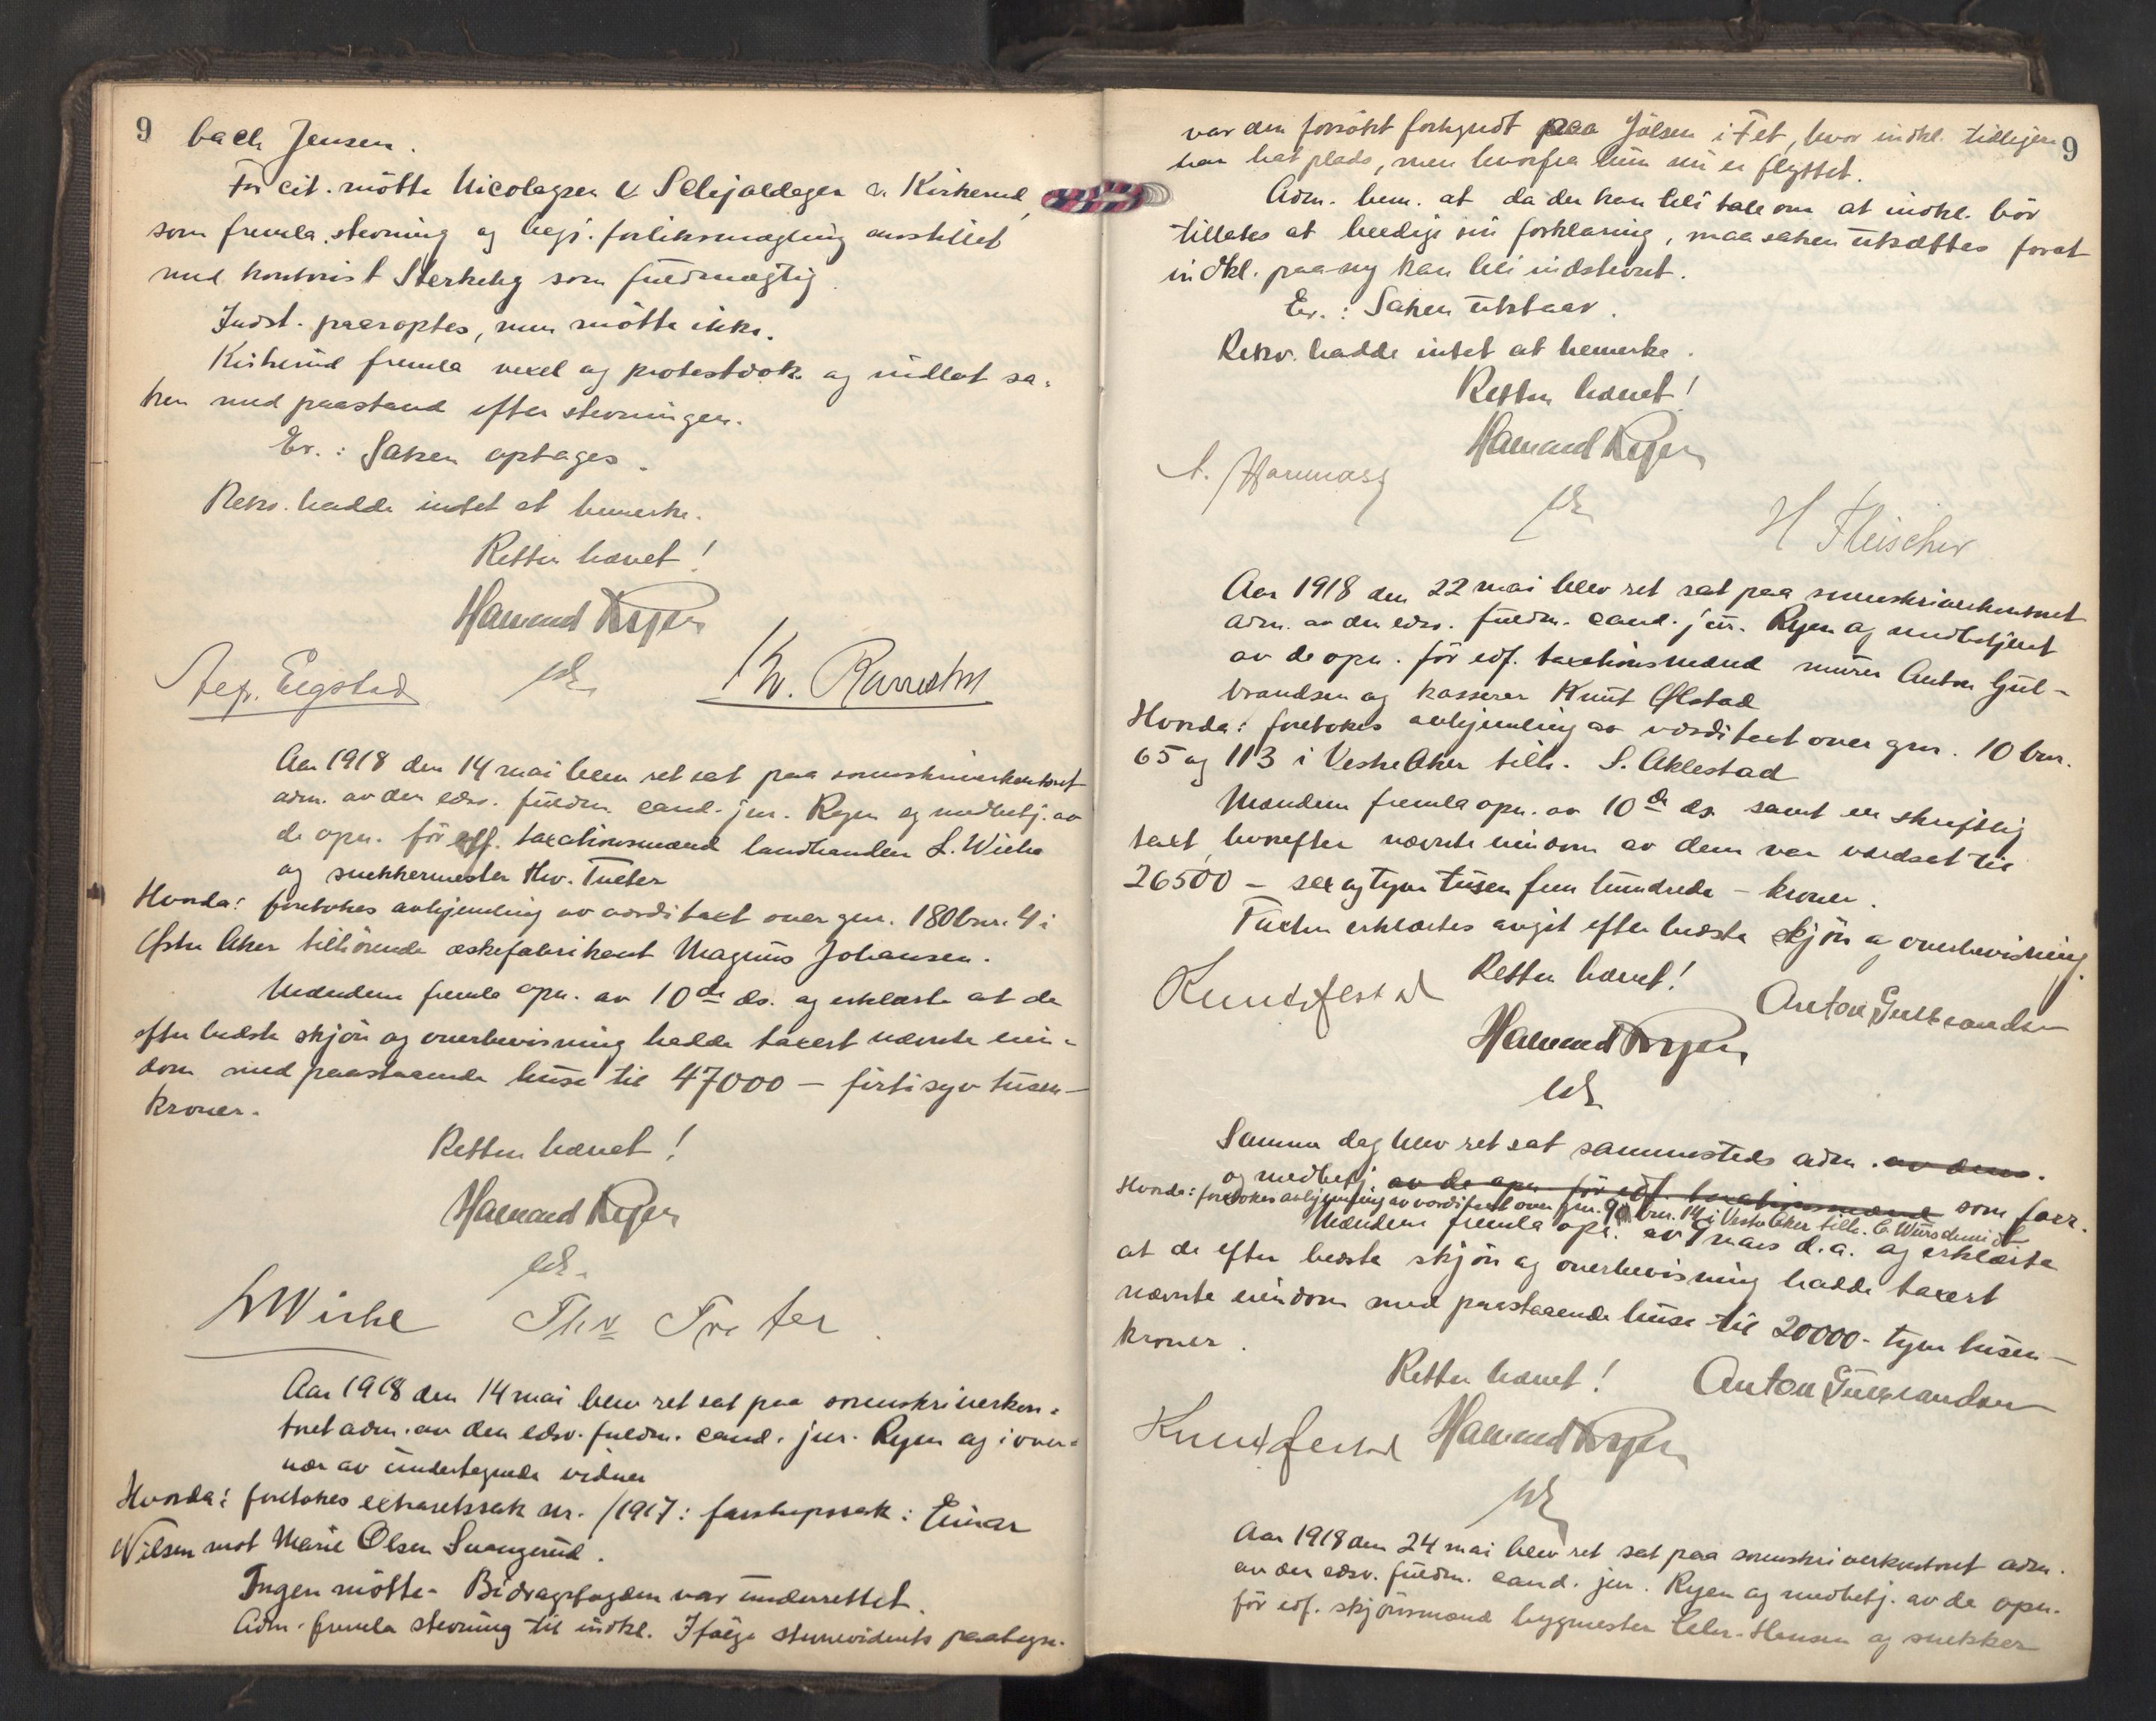 9
bach Jensen.
For cit. mötte Nicolaysen & Schjoldager v. Kirkerud,
som fremla stevning og begj. forliksmægling anstillet
med kontorist Sterkeby som fuldmægtig.
Indst. paaroptes, men mötte ikke.
Kirkerud fremla vexel og protestdok. og indlot sa-
ken med paastand efter stevningen.
Er.: Saken optages.
Rekv. hadde intet at bemerke.
Retten hævet!
Halvard Ryen
Asp. Eigstad
Aar 1918 den 14 mai blev ret sat paa sorenskriverkontoret
adm. av den edsv. fuldm. cand. jur. Ryen og medbetj. av
de opn. för edf. taxationsmænd landhandler L. Wiche
og snekkermester Thv. Træter
Hvorda: foretokes avhjemling av værditaxt over gnr. 180 bnr. 4 i
Østre Aker tilhörende æskefabrikant Magnus Johansen.
Mændene fremla opn. av 10de ds. og erklærte at de
efter bedste skjön og overbevisning hadde taxert nævnte eien-
dom med paastaaende huse til 47000 – förtisyv tusen –
kroner.
Retten hævet!
Halvard Ryen
L Wiche Thv Træter
Aar 1918 den 14 mai blev ret sat paa sorenskriverkon-
toret adm. av den edsv. fuldm. cand. jur. Ryen og i over-
vær av undertegnede vidner
Hvorda: foretokes extraretssak nr. /1917: farskapssak: Einar
Nilsen mot Marie Olsen Svangerud.
Ingen mötte. Bidragsfogden var underrettet.
Adm. fremla stevning til indkl. Ifölge stevnevidnets paategn.
9
var den forsökt forkyndt paa Jölsen i Fet, hvor indkl. tidligere
har hat plads, men hvorfra hun nu er flyttet.
Adm. bem. at da der kan bli tale om at indkl. bör
tillates at beedige sin forklaring, maa saken utsættes forat
indkl. paany kan bli indstevnt.
Er.: Saken utstaar.
Rekv. hadde intet at bemerke.
Retten hævet!
Halvard Ryen
H Fleischer
Aar 1918 den 22 mai blev ret sat paa sorenskriverkontoret
adm. av den edsv. fuldm. cand. jur. Ryen og medbetjent
av de opn. för edf. taxationsmænd murer Anton Gul-
brandsen og kasserer Knut Ølstad
Hvorda: foretokes avhjemling av værditaxt over gnr. 10 bnr.
65 og 113 i Vestre Aker tilh. S. Aklestad
Mændene fremla opn. av 10de ds. samt en skriftlig
taxt, hvorefter nævnte eiendom av dem var værdsat til
26500 – sex og tyve tusen fem hundrede – kroner.
Taxten erklærtes avgit efter bedste skjön og overbevisning.
Retten hævet!
Knut Ølstad Anton Gulbrandsen
Halvard Ryen
Samme dag blev ret sat sammesteds adm. av den
og medbetj. av de opn. för edf. taxationsmænd som forr.
Hvorda: foretokes avhjemling av værditaxt over gnr. 90 bnr. 14 i Vestre Aker tilh.
Mændene fremla opn. av mars d.a. og erklærte
at de efter bedste skjön og overbevisning hadde taxert
nævnte eiendom med paastaaende huse til 20000 - tyve tusen –
kroner.
Retten hævet! Anton Gulbrandsen
Knut Ølstad Halvard Ryen
Aar 1918 den 24 mai blev ret sat paa sorenskriverkontoret adm.
av den edsv. fuldm. cand. jur. Ryen og medbetj. av de opn.
för edf. skjönsmænd bygmester Hansen og snekker